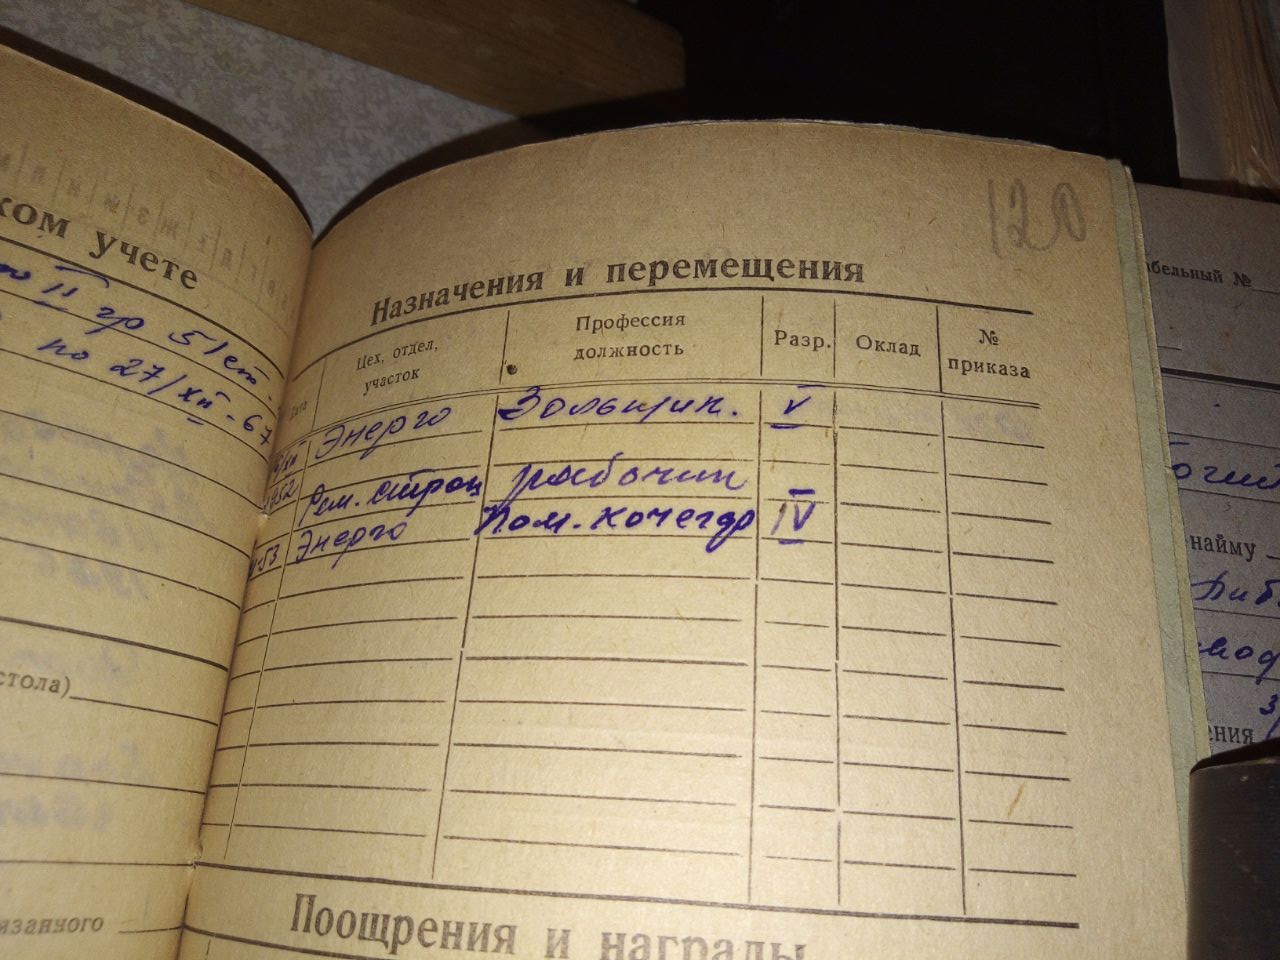 ком учете
II гр 5 лет.
по 27/XII-67
стола)
занного
120
Назначения и перемещения
Дата
Цех, отдел, участок
Профессия должность
Разр.
Оклад
№ приказа
Энерго Зольщик. V
1952 Рем. строц рабочий
53 Энерго Пом. кочегар IV
Поощрения и награды
бельный №
найму
ения